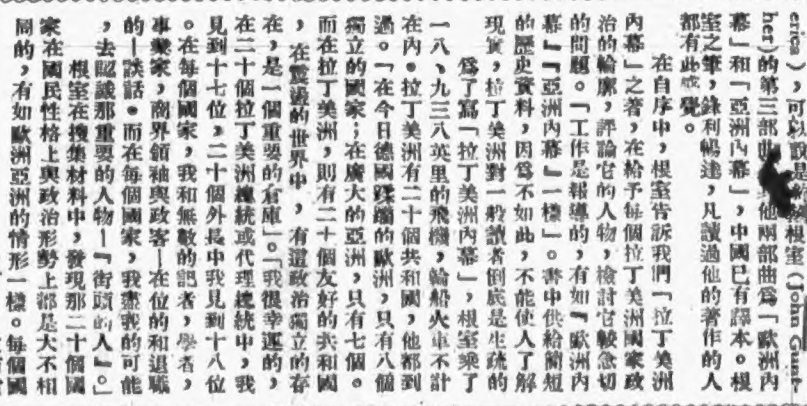 erica），可以說是約翰根室（John Gunt-
her）的第三部曲 他兩部曲爲「歐洲內
幕」和「亞洲內幕」，中國已有譯本。根
室之筆，鋒利暢達，凡讀過他的著作的人
都有此感覺。
在自序中，根室告訴我們「拉丁美洲
內幕」之著，在給予每個拉丁美洲國家政
治的輪廓，評論它的人物，檢討它較急切
的問題。「工作是報導的，有如『歐洲內
幕』『亞洲內幕』一樣」。書中供給簡短
的歷史資料，因爲不如此，不能使人了解
現實，拉丁美洲對一般讀者倒底是生疏的
爲了寫「拉丁美洲內幕」，根室乘了
一八、九三八英里的飛機，輪船火車不計
在內。拉丁美洲有二十個共和國，他都到
過。「在今日德國蹂躪的歐洲，只有八個
獨立的國家；在廣大的亞洲，只有七個。
而在拉丁美洲，則有二十個友好的共和國
，在震盪的世界中，有這政治獨立的存
在，是一個重要的倉庫」。「我很幸運的，
在二十個拉丁美洲總統或代理總統中，我
見到十七位，二十個外長中我見到十八位
。在每個國家，我和無數的記者，學者，
事業家，商界領袖與政客—在位的和退職
的—談話。而在每個國家，我盡我的可能
，去認識那重要的人物—『街頭的人』。」
根室在搜集材料中，發現那二十個國
家在國民性格上與政治形勢上都是大不相
同的，有如歐洲亞洲的情形一樣。每個國